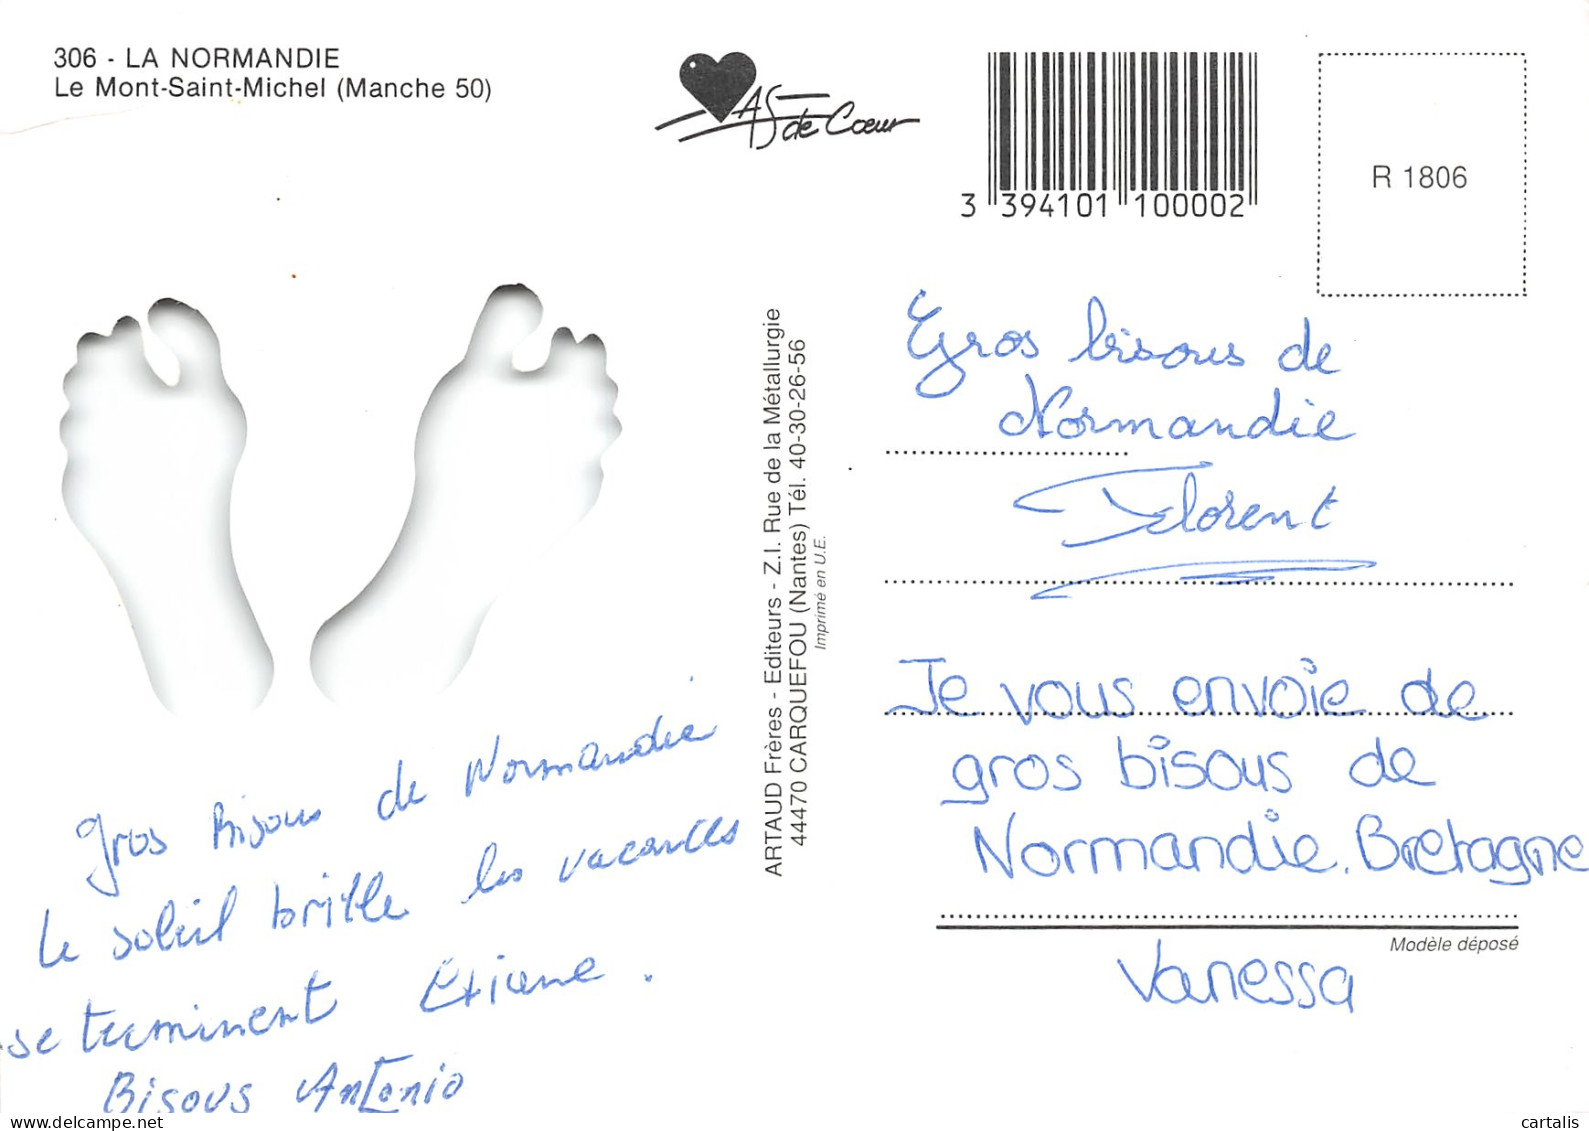 306 - LA NORMANDIE
Le Mont-Saint-Michel (Manche 50)
AS de Cœur
3 394101 100002
R 1806
Gros bisous de
Normandie
Florent
Je vous envoie de
gros bisous de
Normandie. Bretagne
Vanessa
Modèle déposé
ARTAUD Frères - Editeurs - Z.I. Rue de la Métallurgie
44470 CARQUEFOU (Nantes) Tél. 40-30-26-56
Imprimé en U.E.
gros Bisous de Normandie
le soleil brille les vacances
se terminent
Bisous Antonio
delcampe.net
cartalis